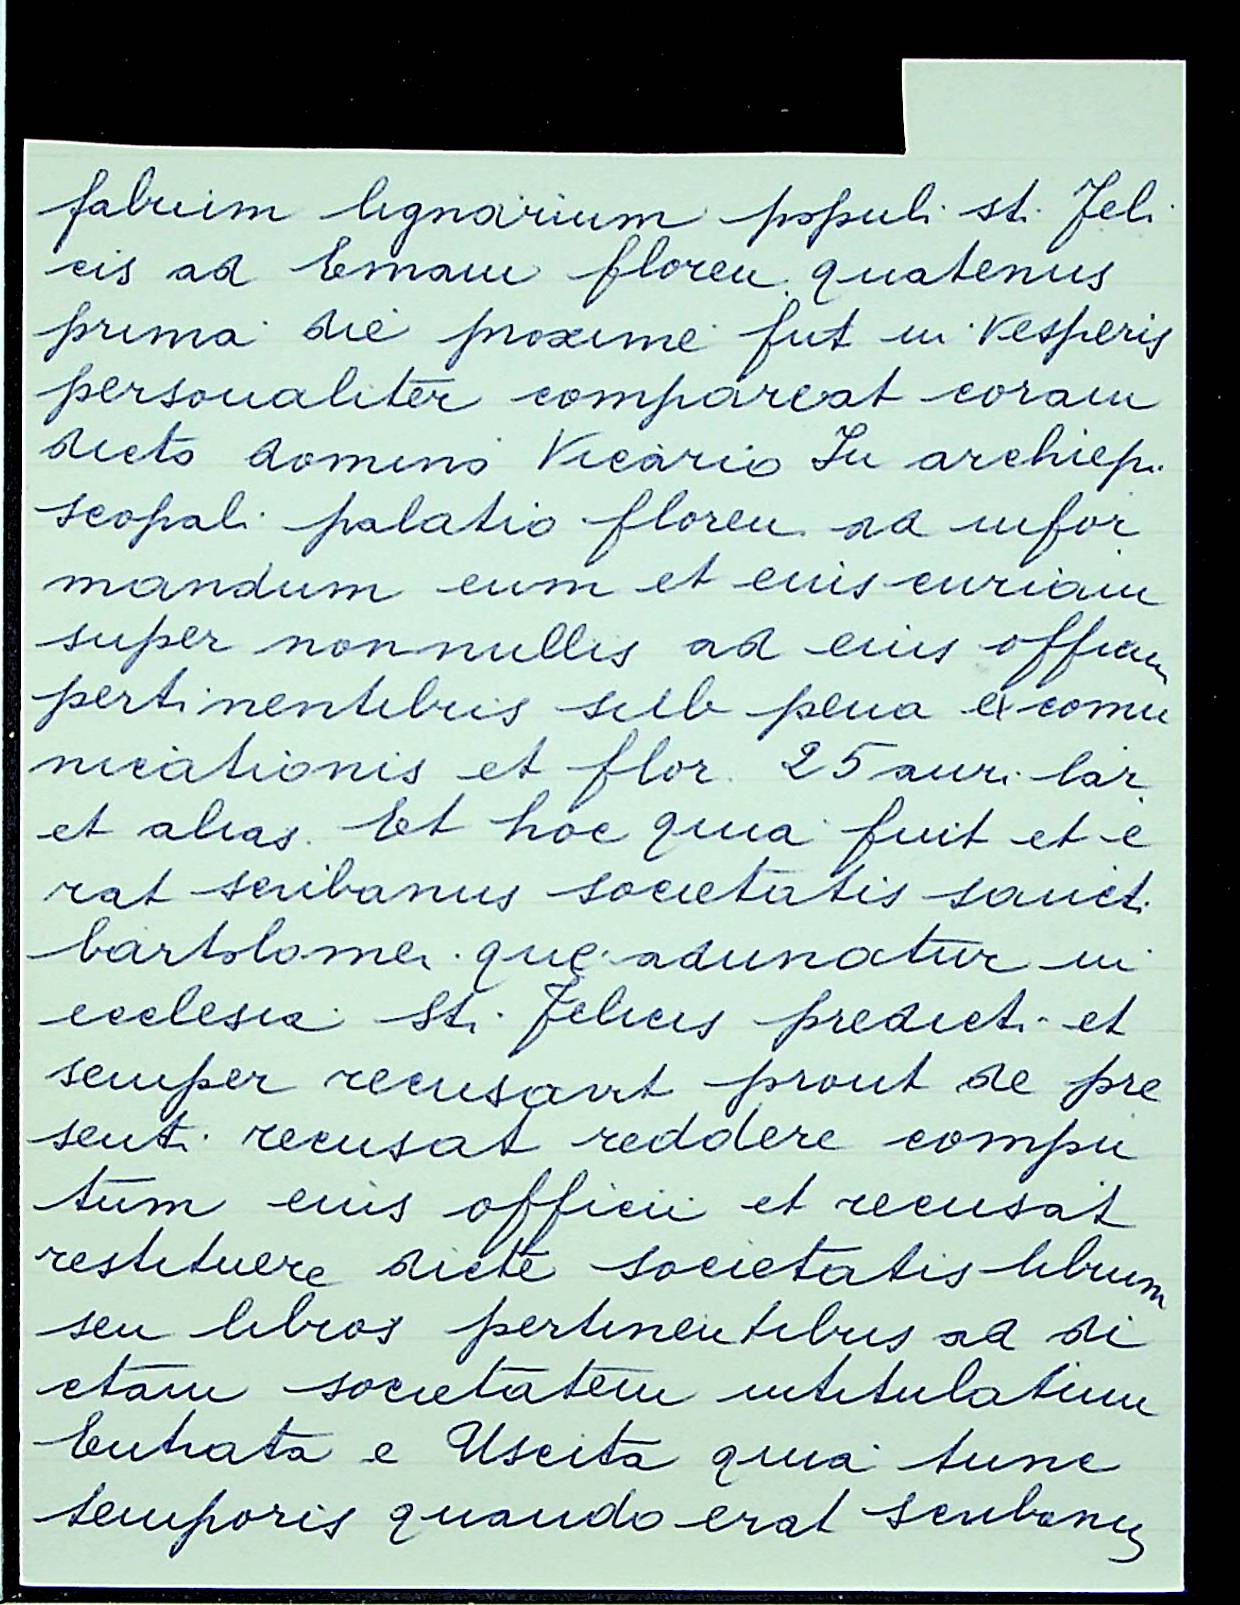 fabrum lignarium populi sti Feli
cis ad Emam floren. quatenus
prima die proxime fut in Vesperis
personaliter compareat coram
dicto domino Vicario In archiepi
scopali palatio floren. ad infor
mandum eum et eius curiam
super nonnullis ad eius officium
pertinentibus sub pena excomu
nicationis et flor. 25 auri lar.
et alias. Et hoc quia fuit et e
rat scribanus societatis sancti
bartolomei que adunatur in
ecclesia sti Felicis predicti et
semper recusavit prout de pre
senti recusat reddere compu
tum eius officii et recusat
restituere dicte societatis librum
seu libros pertinentibus ad di
ctam societatem intitulatum
Entrata e Uscita quia tunc
temporis quando erat scribanus